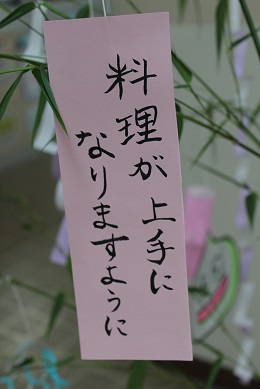 料理が上手に
なりますように